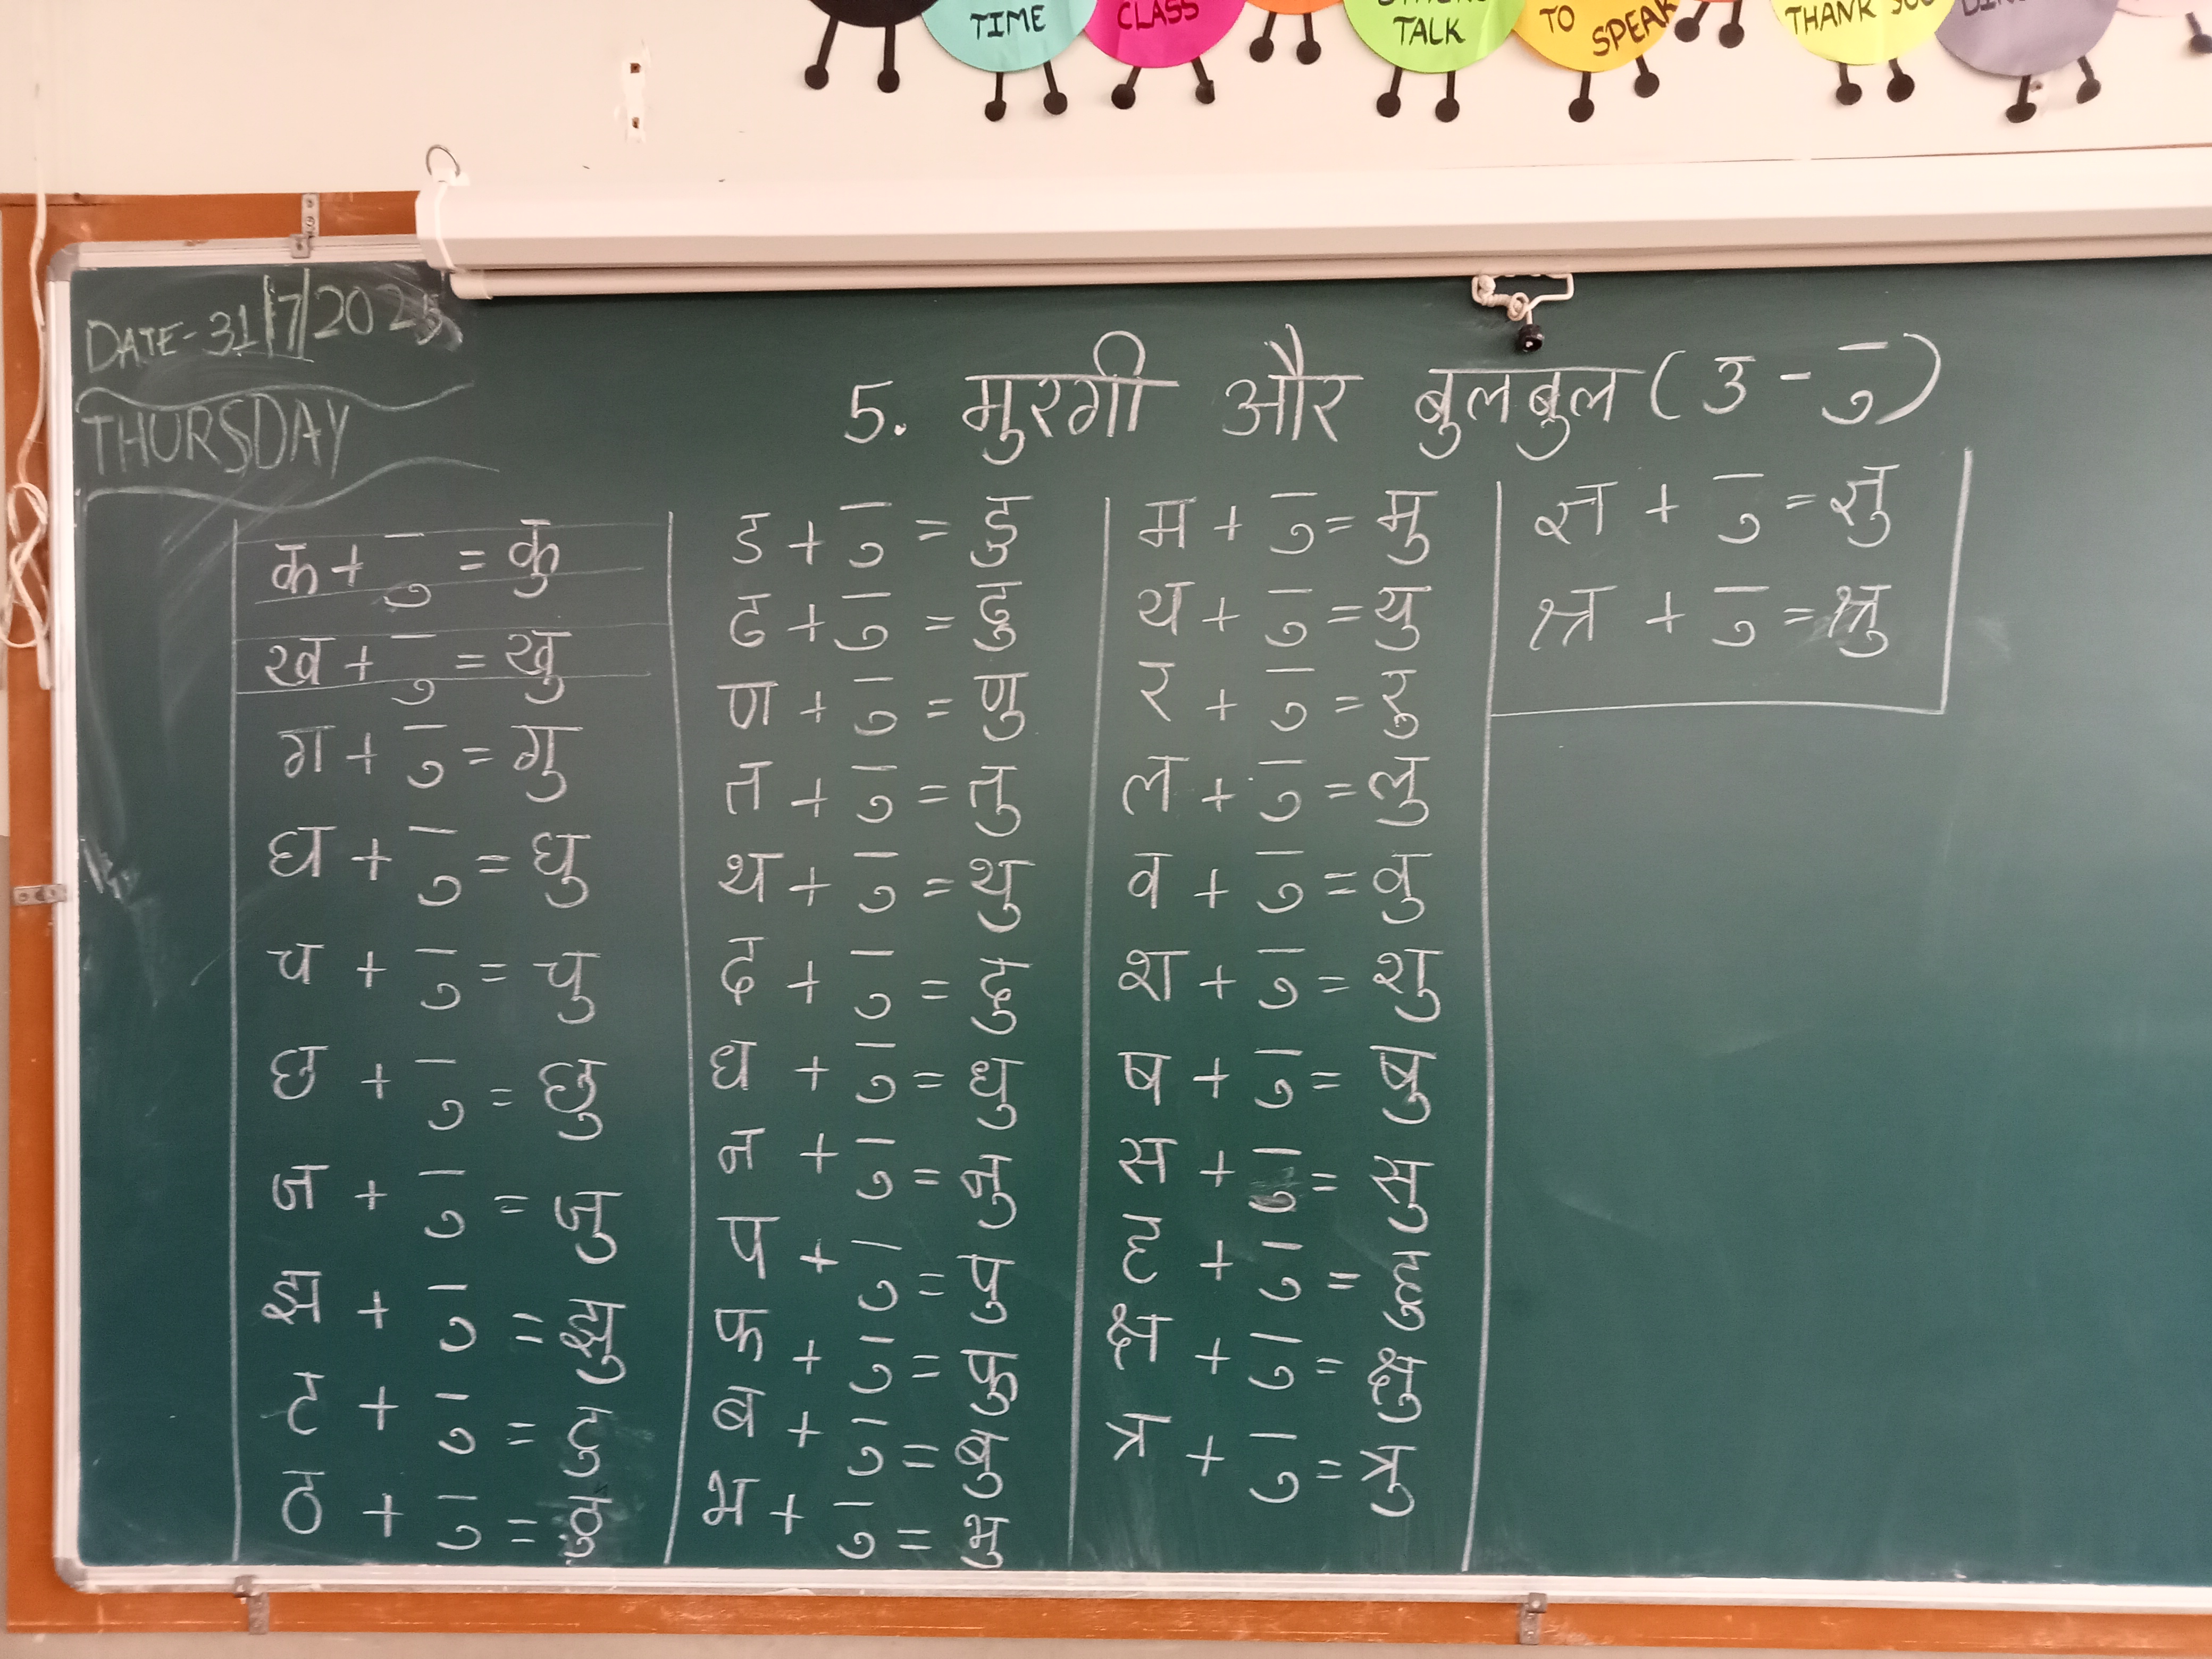 TIME
CLASS
TALK
TO SPEAK
THANK YOU
DATE-31/7/2025
THURSDAY
5. मुरगी और बुलबुल (उ - ु)
क + ु = कु
ख + ु = खु
ग + ु = गु
घ + ु = घु
च + ु = चु
छ + ु = छु
ज + ु = जु
झ + ु = झु
ट + ु = टु
ठ + ु = ठु
ड + ु = डु
ढ + ु = ढु
ण + ु = णु
त + ु = तु
थ + ु = थु
द + ु = दु
ध + ु = धु
न + ु = नु
प + ु = पु
फ + ु = फु
ब + ु = बु
भ + ु = भु
म + ु = मु
य + ु = यु
र + ु = रु
ल + ु = लु
व + ु = वु
श + ु = शु
ष + ु = षु
स + ु = सु
ह + ु = हु
क्ष + ु = क्षु
त्र + ु = त्रु
ज्ञ + ु = ज्ञु
श्र + ु = श्रु